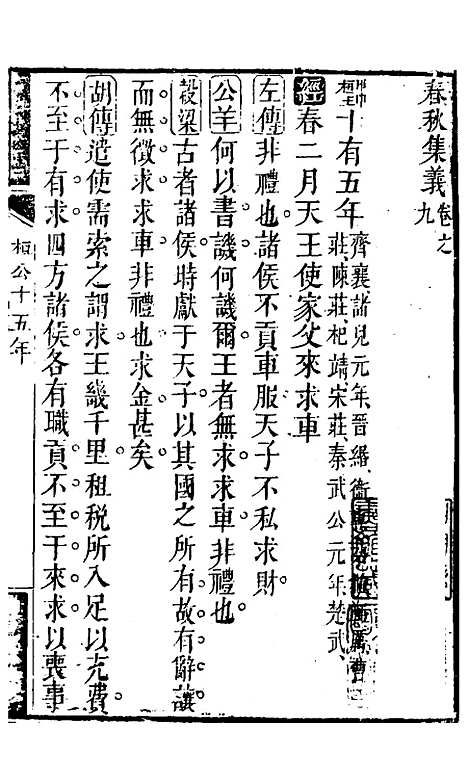 春秋集義卷之九
桓王十有五年齊襄諸兒元年晉緡衛
莊陳莊杞靖宋莊秦武公元年楚武
經春二月天王使家父來求車
左傳非禮也諸侯不貢車服天子不私求財
公羊何以書譏何譏爾王者無求求車非禮也
穀梁古者諸侯時獻于天子以其國之所有故有辭讓
而無徵求求車非禮也求金甚矣
胡傳遣使需索之謂求王畿千里租稅所入足以充費
不至于有求四方諸侯各有職貢不至于來求以喪事
桓公十五年